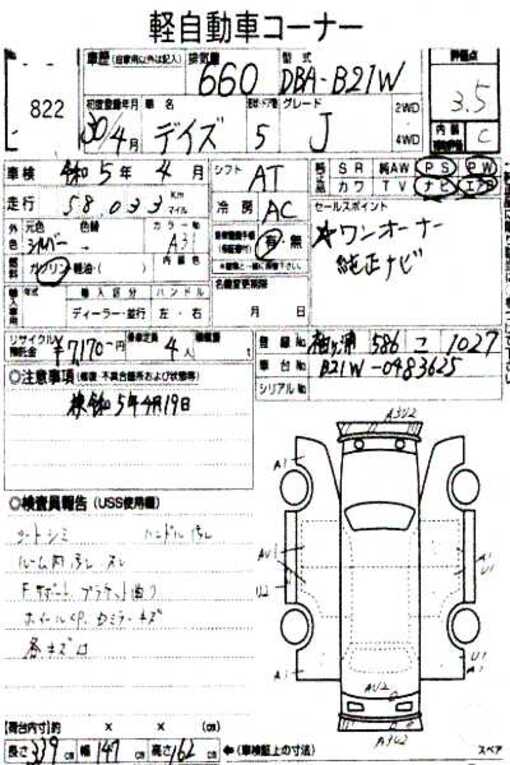 軽自動車コーナー
822
車歴 (自家用以外は記入) 排気量 660 型式 DBA-B21W 評価点 3.5
初度登録年月 30/4月 車名 デイズ 5 グレード J 2WD 4WD 内装 C
車検 令和5年4月 シフト AT SR 純AW PS PW
カワ TV ナビ エアB
走行 58,033 Km マイル 冷房 AC セールスポイント
外色 元色 シルバー 色替 → カラーNo A31 有・無 ☆ワンオーナー
純正ナビ
燃料 ガソリン・軽油・( ) 内装色
名義変更期限 月 日
輸入車用 年式 輸入区分 ディーラー・並行 ハンドル 左・右
リサイクル預託金 ¥7170-円 乗車定員 4人 積載量 t 登録No 袖ヶ浦 586 コ 1027
車台No B21W-0483625
シリアルNo
◎注意事項 (修復・不具合箇所および状態等)
検令和5年4月19日
◎検査員報告 (USS使用欄)
シートシミ ハンドル汚レ
ルーム内汚レ スレ
F.サポート ブラケット曲り
各キズ凹
A3U2
A1
AU1
U2
A1
U1
A1
U1
A1
AU2
A3U2
【荷台内寸】約 × × (cm)
長さ 339 cm 幅 147 cm 高さ 162 cm ←(車検証上の寸法) スペア